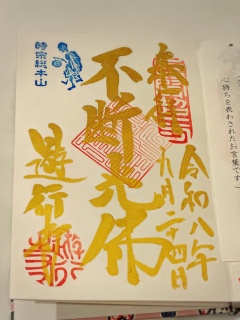 奉拝
令和八年
九月二十四日
不断光佛
時宗総本山
遊行寺
心持ちを表わされたお言葉です）